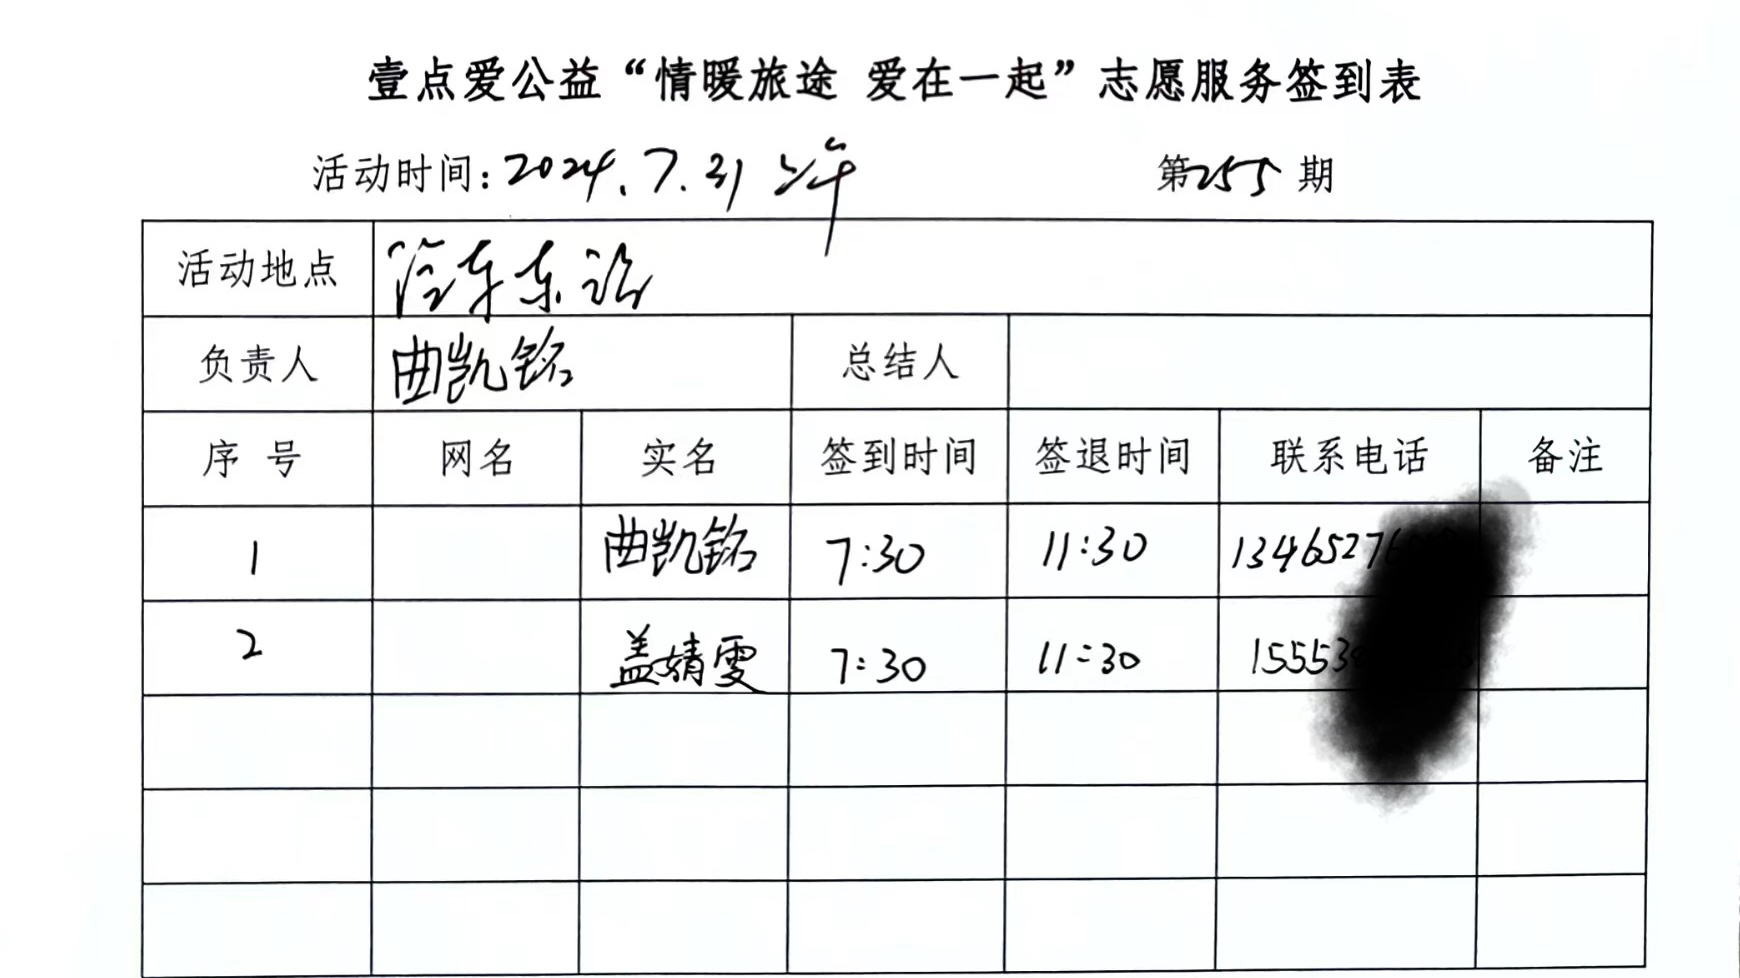 壹点爱公益“情暖旅途 爱在一起”志愿服务签到表
活动时间:2024.7.31 上午 第255期
活动地点 汽车东站
负责人 曲凯铭 总结人
序号 网名 实名 签到时间 签退时间 联系电话 备注
1 曲凯铭 7:30 11:30 13465276
2 盖婧雯 7:30 11:30 15553